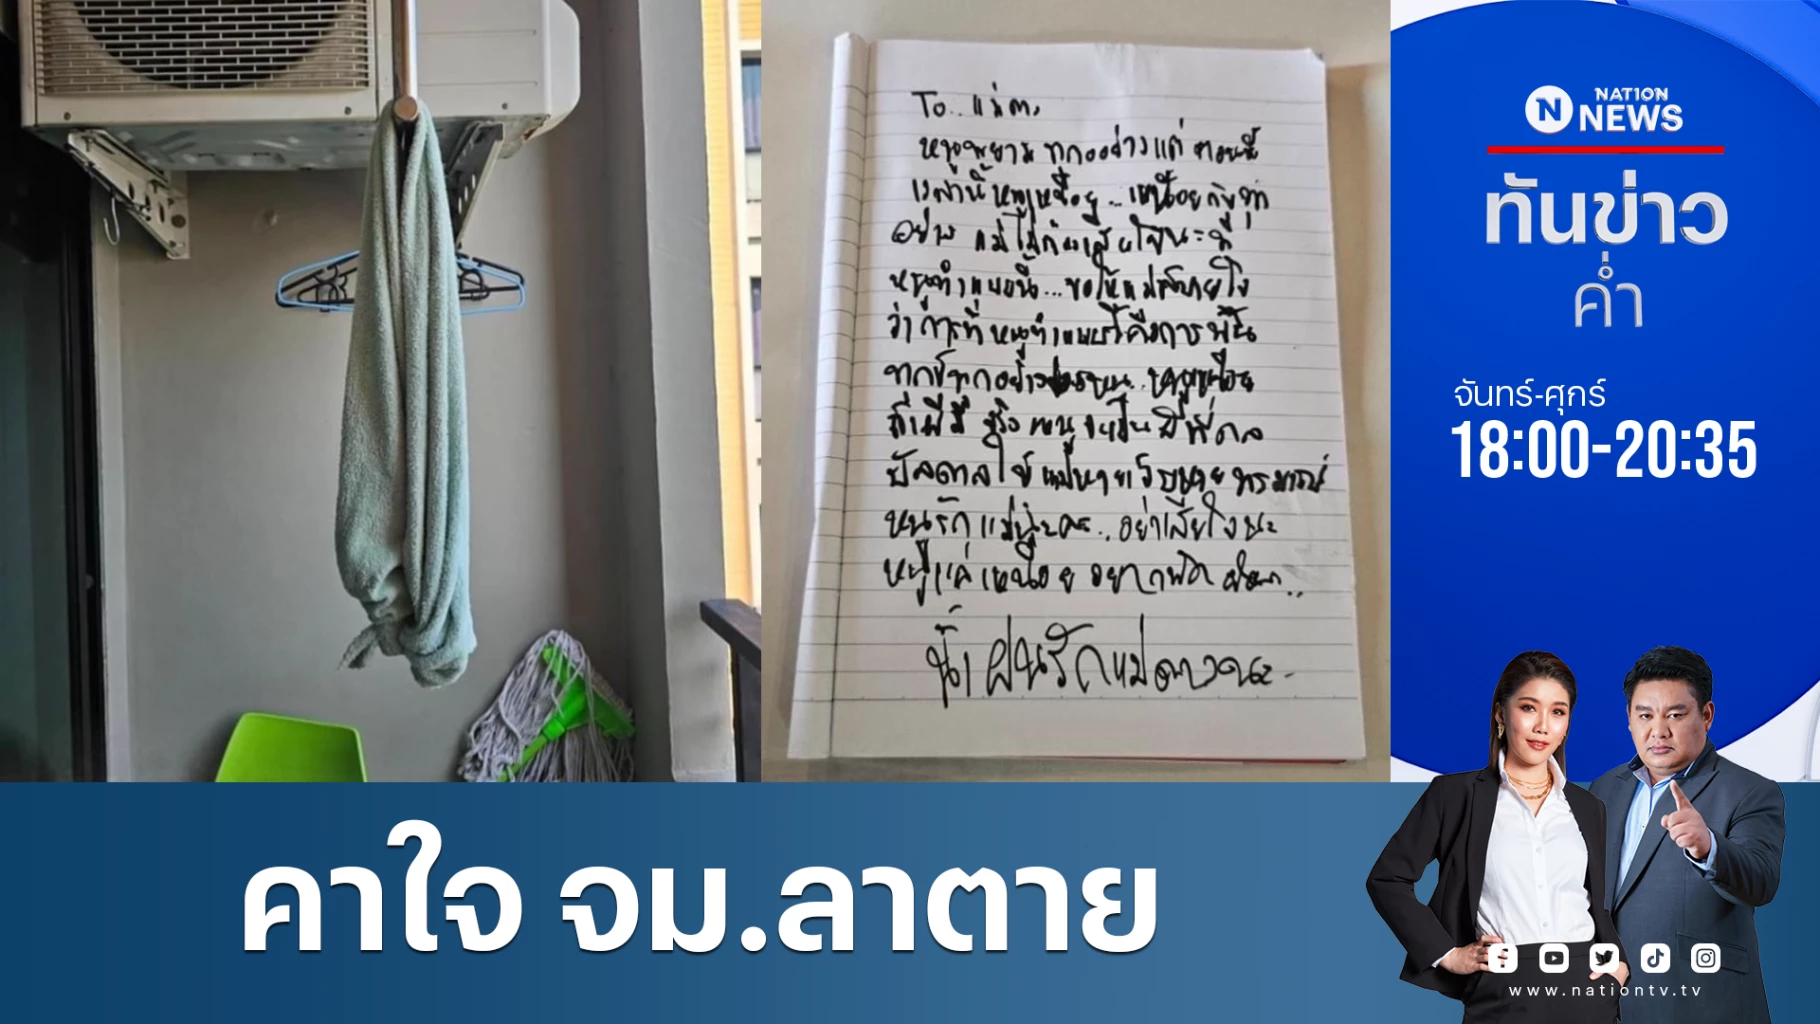 To..แม่ดา
หนูพยายามทุกอย่างแต่ ตอนนี้
เวลานี้หนูเหนื่อย...เหนื่อยกับทุก
อย่าง แม่ไม่ต้องเสียใจนะที่
หนูทำแบบนี้...ขอให้แม่สบายใจ
ว่าการที่หนูทำแบบนี้คือการพ้น
ทุกข์ทุกอย่าง หนูเหนื่อย
ถ้ามีจริง หนูจะเป็น
บัลดาลให้แม่หายเจ็บหายทรมาน
หนูรักแม่นะคะ..อย่าเสียใจนะ
หนูแค่เหนื่อย อยากพัก
น้ำฝนรักแม่ดาวนะ
NATION
NEWS
ทันข่าว
ค่ำ
จันทร์-ศุกร์
18:00-20:35
คาใจ จม.ลาตาย
www.nationtv.tv